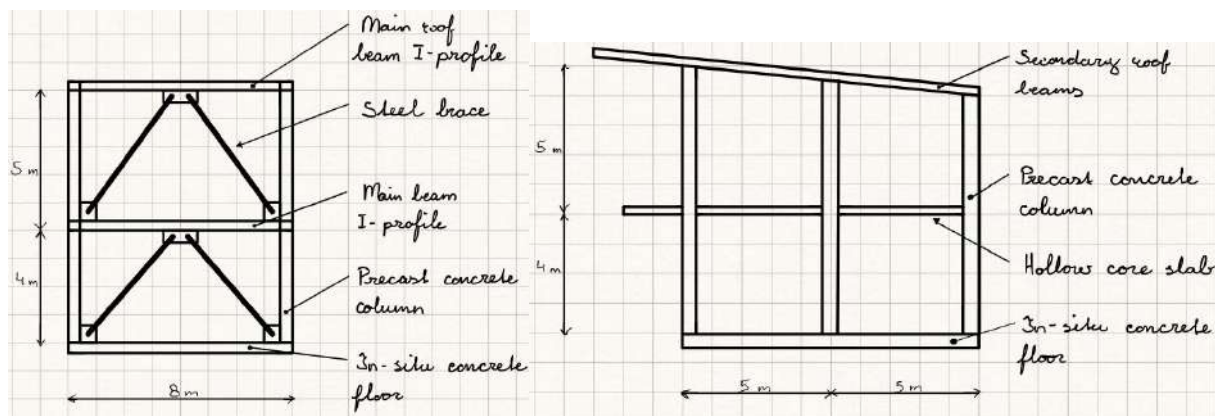 Main roof
beam I-profile
Steel brace
5 m
Main beam
I-profile
4 m
Precast concrete
column
In-situ concrete
floor
8 m
Secondary roof
beams
5 m
Precast concrete
column
4 m
Hollow core slab
In-situ concrete
floor
5 m
5 m